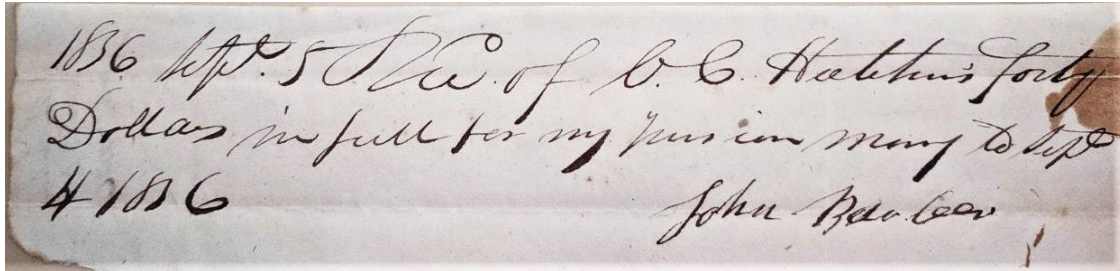 1836 Sept. 5 Rec. of O. C. Hutchins forty
Dollars in full for my pension mony to Sept
4 1836
John